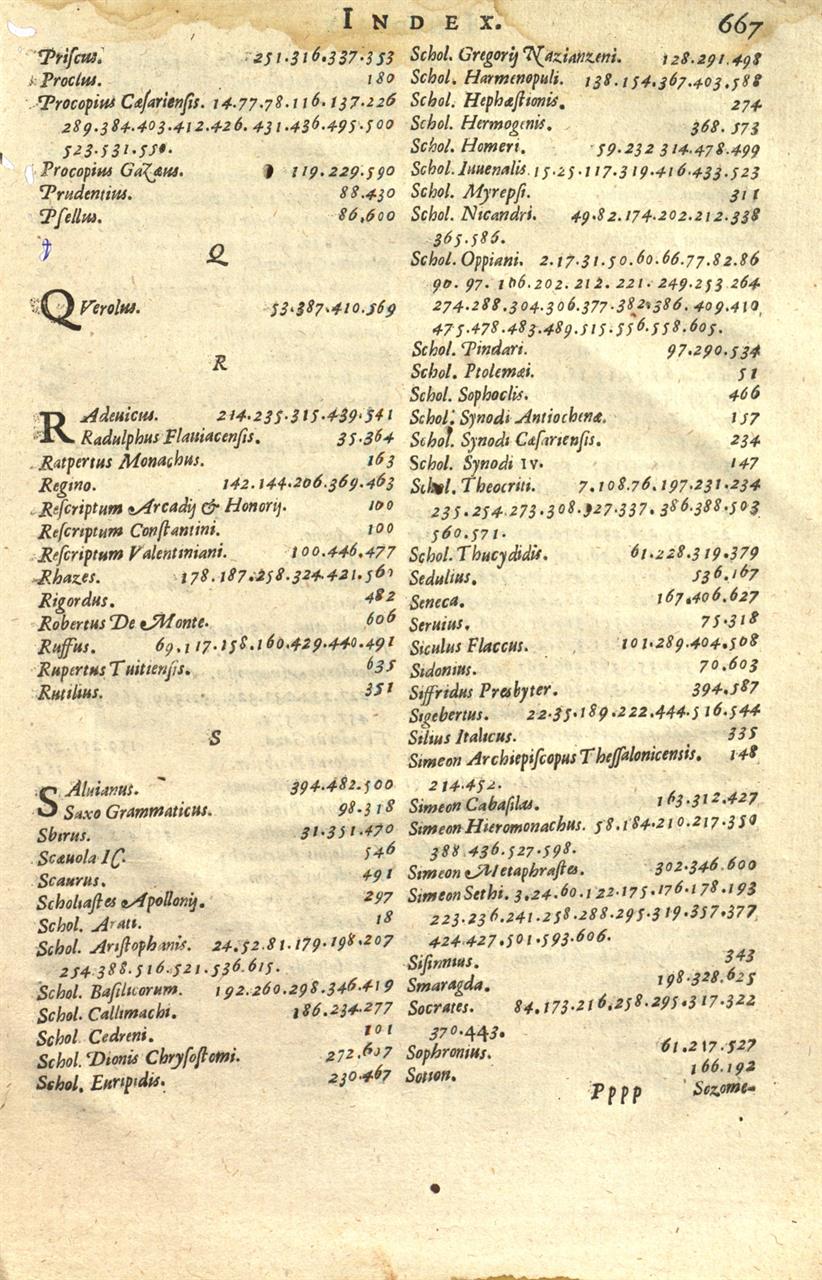 INDEX. 667
Priſcus. 251.316.337.353
Proclus. 180
Procopius Cæſarienſis. 14.77.78.116.137.226
289.384.403.412.426.431.436.495.500
523.531.550.
Procopius Gazæus. 119.229.590
Prudentius. 88.430
Pſellus. 86.600
Q
QVerolus. 53.387.410.569
R
RAdeuicus. 214.235.315.439.541
Radulphus Flauiacenſis. 35.364
Ratpertus Monachus. 163
Regino. 142.144.206.369.463
Reſcriptum Arcadij & Honorij. 100
Reſcriptum Conſtantini. 100
Reſcriptum Valentiniani. 100.446.477
Rhazes. 178.187.258.324.421.560
Rigordus. 482
Robertus De Monte. 606
Ruffus. 69.117.158.160.429.440.491
Rupertus Tuitienſis. 635
Rutilius. 351
S
SAluianus. 394.482.500
Saxo Grammaticus. 98.318
Sbirus. 31.351.470
Scæuola IC. 546
Scaurus. 491
Scholiaſtes Apollonij. 297
Schol. Arati. 18
Schol. Ariſtophanis. 24.52.81.179.198.207
254.388.516.521.536.615.
Schol. Baſilicorum. 192.260.298.346.419
Schol. Callimachi. 186.234.277
Schol. Cedreni. 101
Schol. Dionis Chryſoſtomi. 272.607
Schol. Euripidis. 230.467
Schol. Gregorij Nazianzeni. 128.291.498
Schol. Harmenopuli. 138.154.367.403.588
Schol. Hephæſtionis. 274
Schol. Hermogenis. 368.573
Schol. Homeri. 59.232 314.478.499
Schol. Iuuenalis. 15.25.117.319.416.433.523
Schol. Myrepſi. 311
Schol. Nicandri. 49.82.174.202.212.338
365.586.
Schol. Oppiani. 2.17.31.50.60.66.77.82.86
90.97.106.202.212.221.249.253.264
274.288.304.306.377.382.386.409.410
475.478.483.489.515.556.558.605.
Schol. Pindari. 97.290.534
Schol. Ptolemæi. 51
Schol. Sophoclis. 466
Schol. Synodi Antiochenæ. 157
Schol. Synodi Cæſarienſis. 234
Schol. Synodi IV. 147
Schol. Theocriti. 7.108.76.197.231.234
235.254.273.308.327.337.386.388.503
560.571.
Schol. Thucydidis. 61.228.319.379
Sedulius. 536.167
Seneca. 167.406.627
Seruius. 75.318
Siculus Flaccus. 101.289.404.508
Sidonius. 70.603
Siffridus Presbyter. 394.587
Sigebertus. 22.35.189.222.444.516.544
Silius Italicus. 335
Simeon Archiepiſcopus Theſſalonicenſis. 148
214.452.
Simeon Cabaſilas. 163.312.427
Simeon Hieromonachus. 58.184.210.217.350
388.436.527.598.
Simeon Metaphraſtes. 302.346.600
Simeon Sethi. 3.24.60.122.175.176.178.193
223.236.241.258.288.295.319.357.377
424.427.501.593.606.
Siſinnius. 343
Smaragda. 198.328.625
Socrates. 84.173.216.258.295.317.322
370.443.
Sophronius. 61.217.527
Sotion. 166.192
Pppp Sozome-